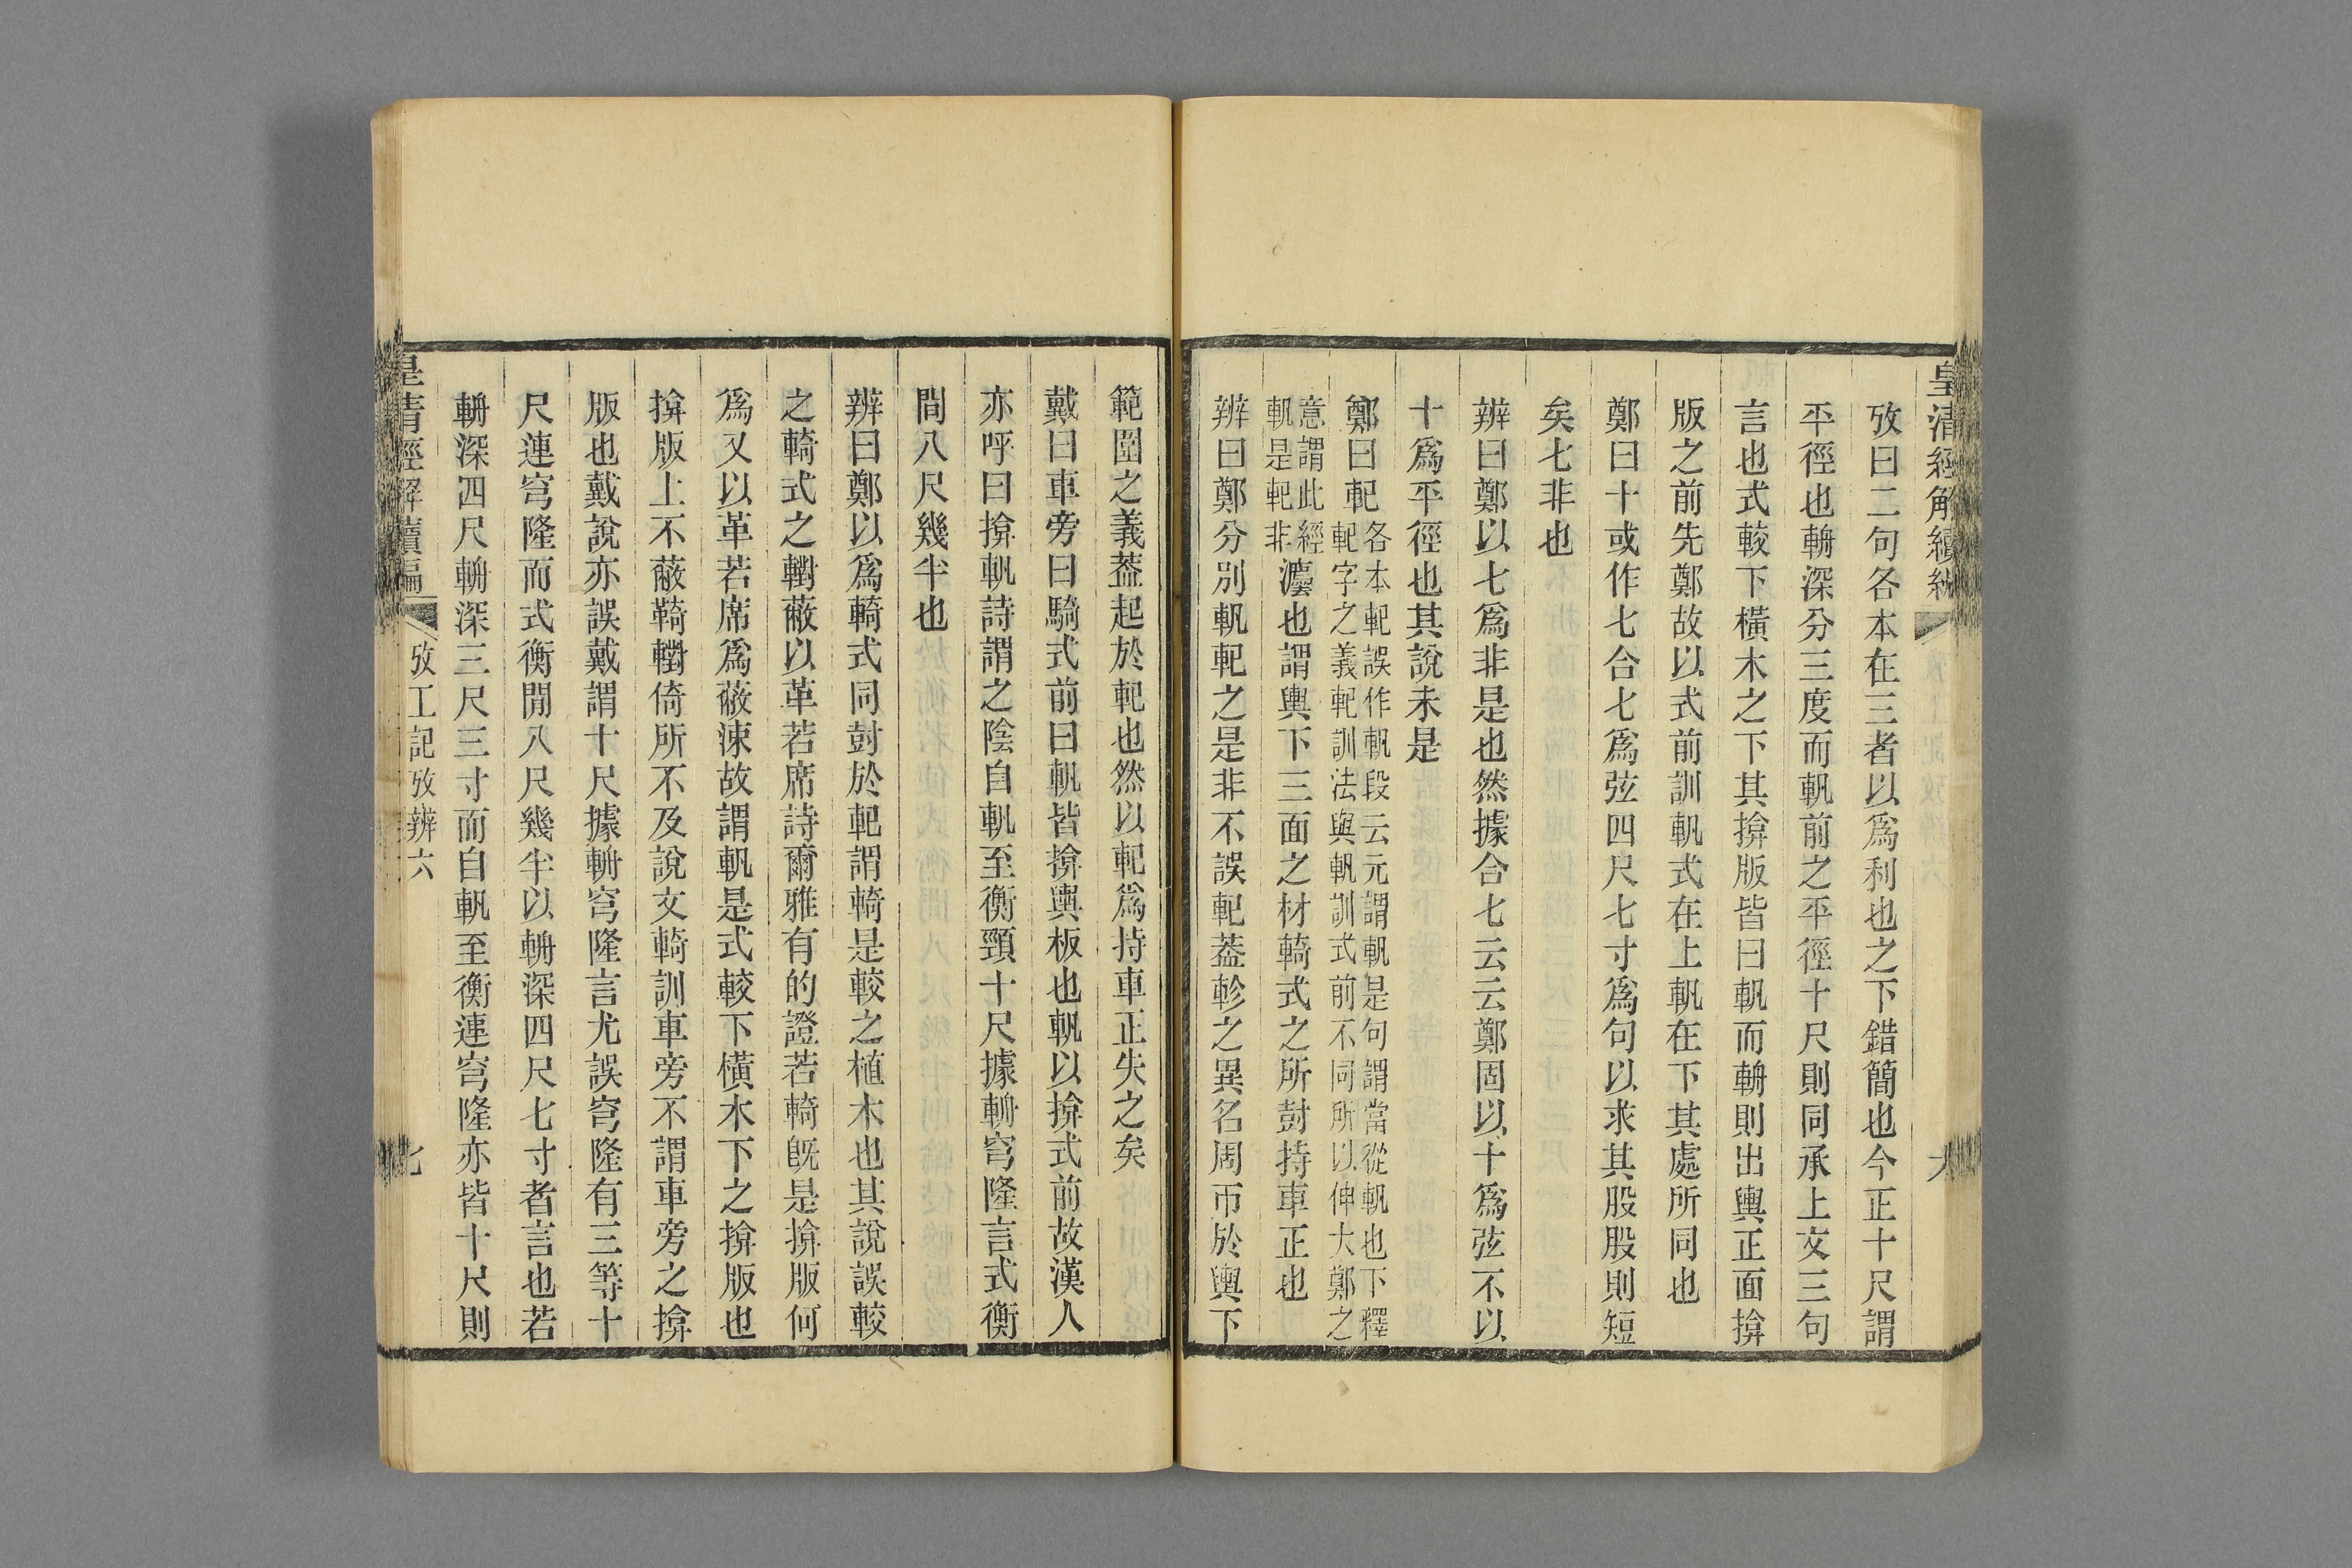 皇清經解續編
攷曰二句各本在三者以爲利也之下錯簡也今正十尺謂
平徑也輈深分三度而軓前之平徑十尺則同承上文三句
言也式較下橫木之下其揜版皆曰軓而輈則出輿正面揜
版之前先鄭故以式前訓軓式在上軓在下其處所同也
鄭曰十或作七合七爲弦四尺七寸爲句以求其股股則短
矣七非也
辨曰鄭以七爲非是也然據合七云云鄭固以十爲弦不以
十爲平徑也其說未是
鄭曰軋各本軋誤作軓段云元謂軓是句謂當從軓也下釋
軋字之義軋訓法與軓訓式前不同所以伸大鄭之
意謂此經
軓是軋非灋也謂輿下三面之材輢式之所尌持車正也
辨曰鄭分別軓軋之是非不誤軋葢軫之異名周帀於輿下
範圍之義葢起於軋也然以軋爲持車正失之矣
戴曰車旁曰輢式前曰軓皆揜輿板也軓以揜式前故漢人
亦呼曰揜軓詩謂之陰自軓至衡頸十尺據輈穹隆言式衡
間八尺幾半也
辨曰鄭以爲輢式同尌於軋謂輢是較之植木也其說誤較
之輢式之轛蔽以革若席詩爾雅有的證若輢旣是揜版何
爲又以革若席爲蔽涑故謂軓是式較下橫木下之揜版也
揜版上不蔽輢轛倚所不及說文輢訓車旁不謂車旁之揜
版也戴說亦誤戴謂十尺據輈穹隆言尤誤穹隆有三等十
尺連穹隆而式衡閒八尺幾半以輈深四尺七寸者言也若
輈深四尺輈深三尺三寸而自軓至衡連穹隆亦皆十尺則
皇清經解續編　攷工記攷辨六　七